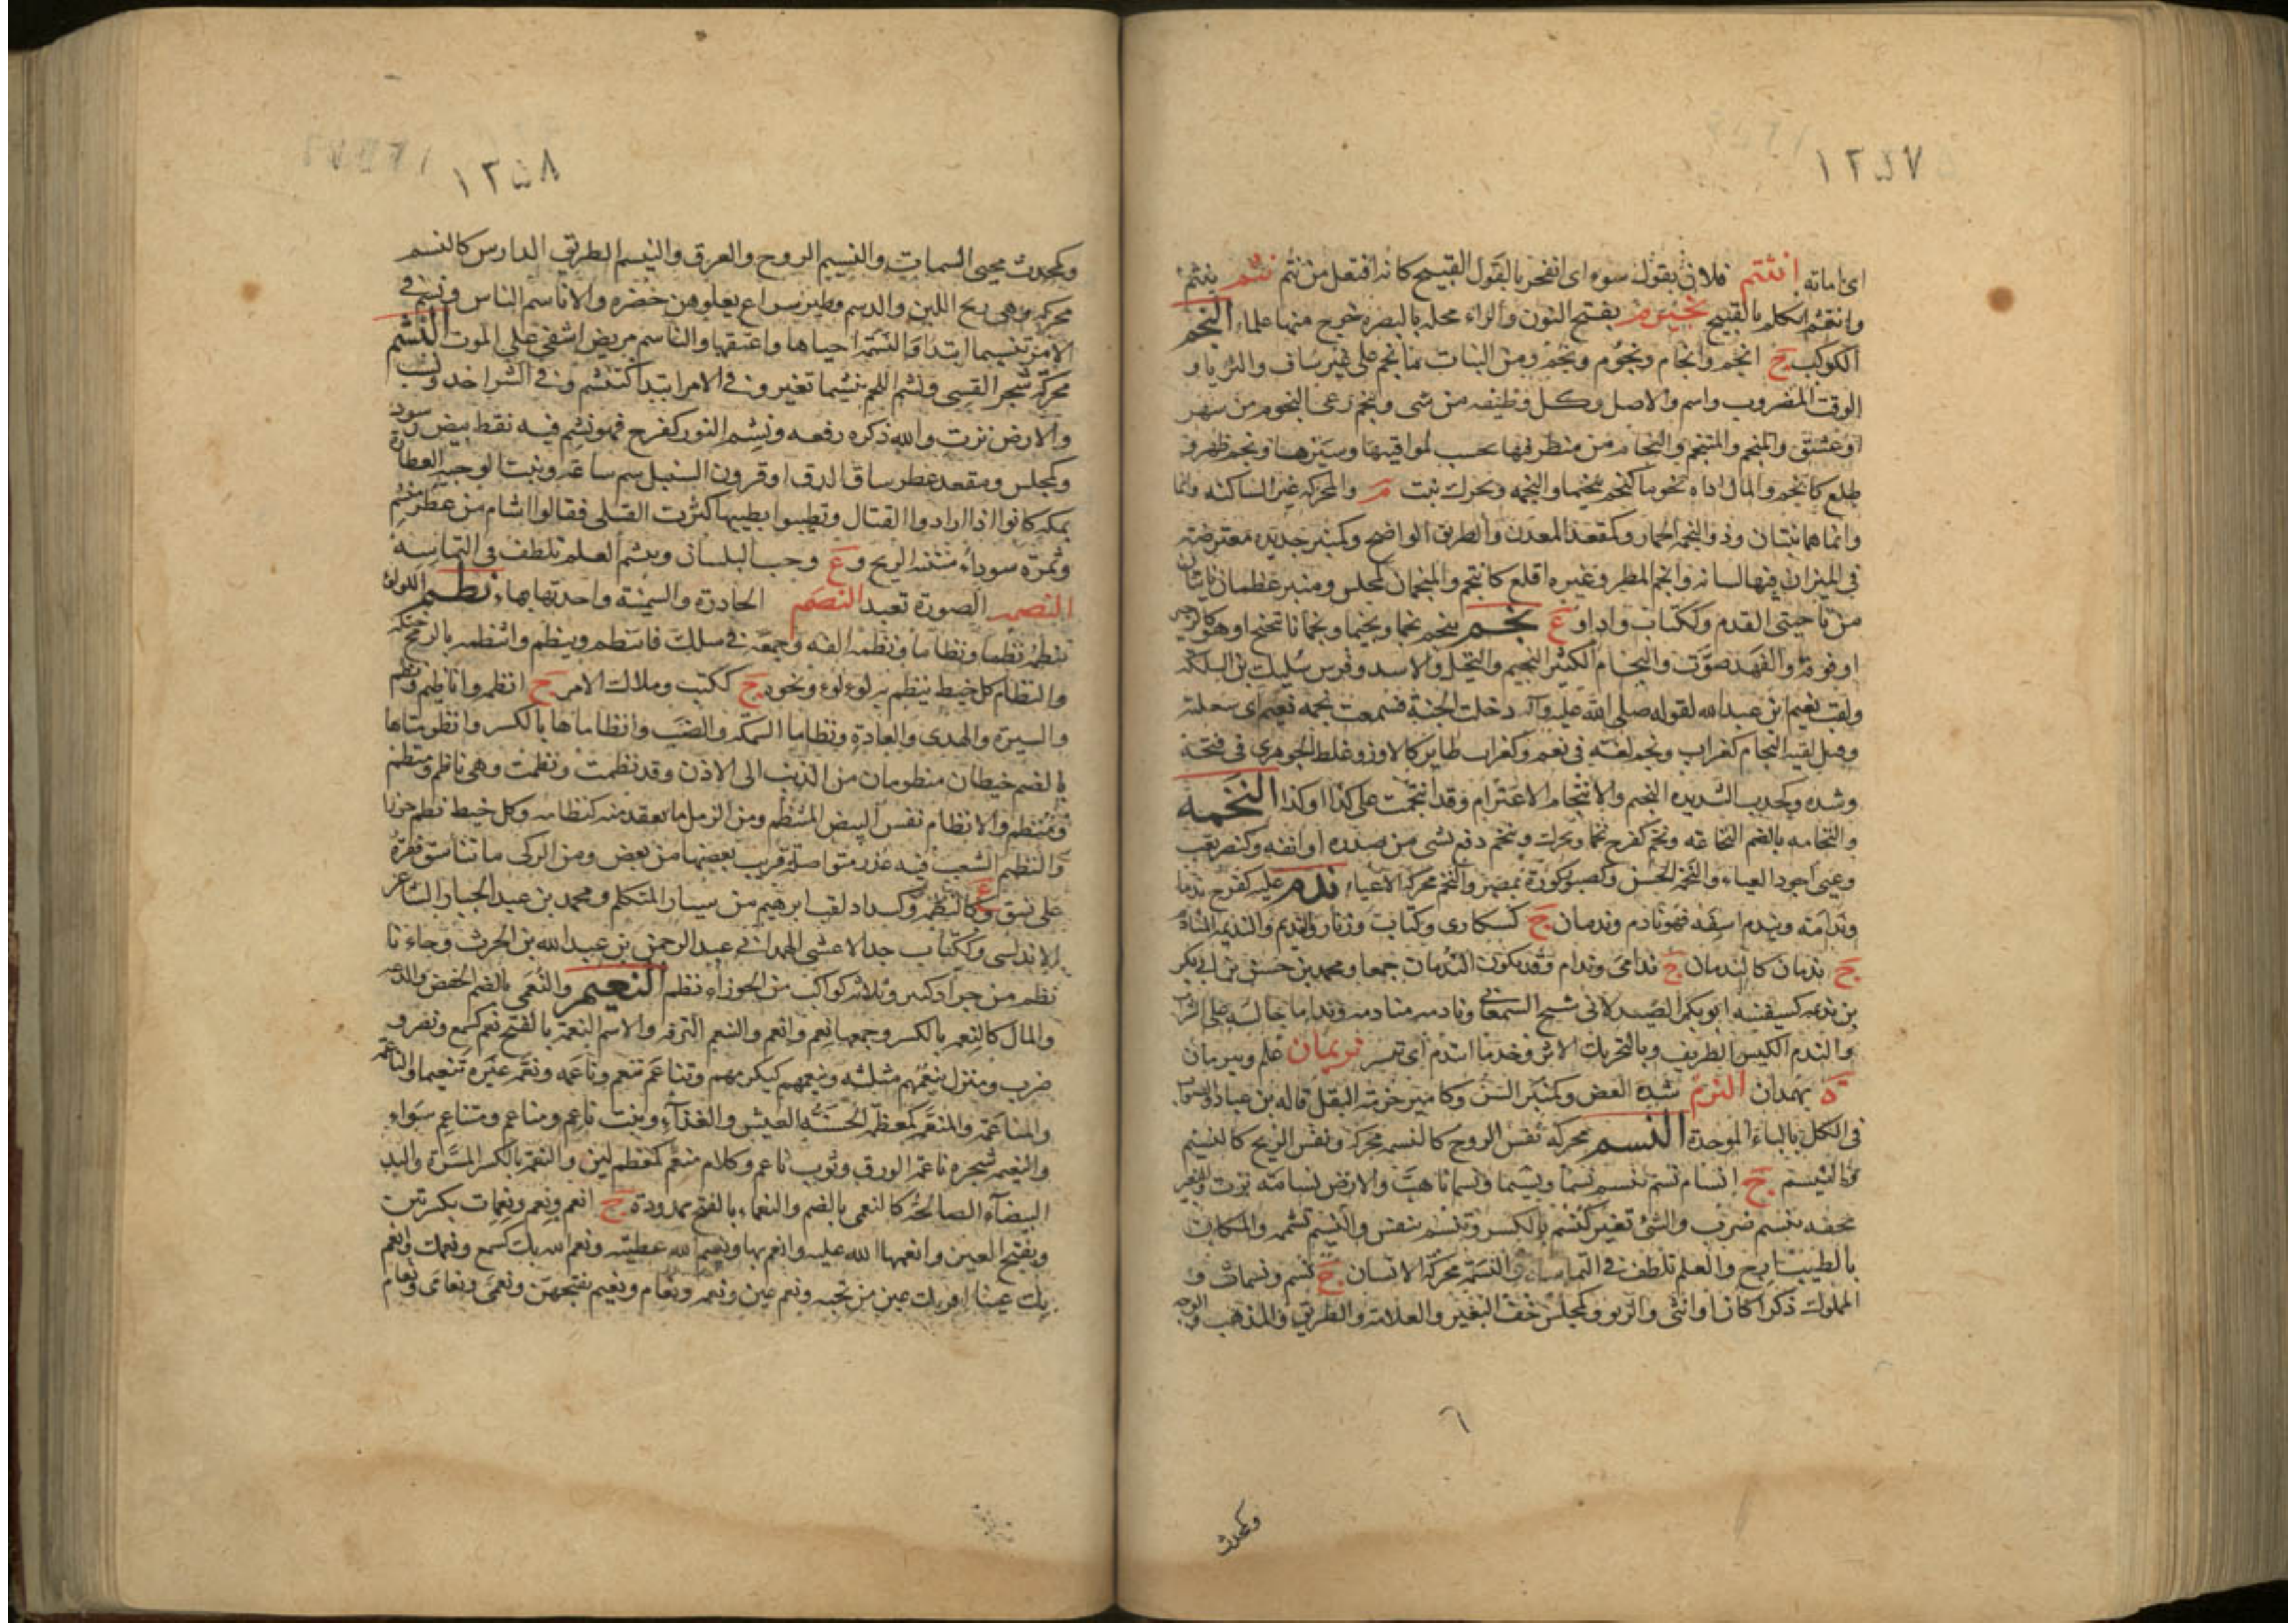 ١٢٥٧
اى اماته انتثم فلان بقول سوء اى انفجر بالقول القبيح كانه افتعل من نثم نثم ينثم
وانتثم تكلم بالقبيح بفتح النون والراء محله بالبصره خرج منها علماء النجم
الكوكب ج انجم وانجام ونجوم ونجم ومن النبات ما نجم على غير ساق والثريا و
الوقت المضروب واسم والاصل وكل وظيفه من شى وتنجم رعى النجوم من سهر
او عشق والمنجم والمتنجم والنجام من منظر فيها بحسب لمواقيتها وسيرها ونجم ظهر و
طلع كانجم والمال اداه نجوما كنجم تنجيما والنجمه ويحرك نبت م والمحركه غير الساكنه وانما
وانما هما نبتان وذو النجمه الحمار وكمقعد المعدن والطريق الواضح وكمنبر حديده معترضه
فى الميزان فيها لسانه وانجم المطر وغيره اقلع كانتجم والمنجمان كمجلس ومنبر عظمان ناتيان
من ناحيتى القدم وككتاب واد او ع نحم ينحم نحما ونحيما ونحمانا تنحنح او هو كالزحير
او فوقه والفهد صوت والنحام الكثير النحيم والبخيل والاسد وفرس سليك بن السلكه
ولقب نعيم ابن عبدالله لقوله صلى الله عليه وآله دخلت الجنة فسمعت نحمه نعيم اى سعلته
وقيل لقبه النحام كغراب ونحم لغه فى نعم وكغراب طاير كالاوز وغلط الجوهرى فى فتحه
وشده وكخدب الشديده النحيم والانتحام الاعتزام وقد انتحمت على كذا او كذا النخمه
والنخامه بالضم النخاعه ونخم كفرح نخما ويحرك وتنخم دفع بشى من صدره او انفه وكنصر لعب
وغنى اجود الغناء والنخم الحسن وكصبور كورة بمصر والنخم محركة الاعياء ندم عليه كفرح ندما
وندامة وتندم اسف فهو نادم وندمان ج كسكارى وكتاب وزنار والنديم والنديمه المنادم
ج ندمان كالندمان ج ندامى وندام وقد يكون الندمان جمعا ومحمد بن حسن بن ابى بكر
بن نديمه كسفينه ابو بكر الصيدلانى شيخ السمعانى ونادمه منادمه وندام جالسه على الشراب
والندم الكيس الظريف وبالتحريك الاثر وخذ ما انتدم اى تيسر نريمان علم ونيرمان
ة بهمدان النزم شده العض وكمنبر السن وكامير حزمة البقل قاله بن عباد والصواب
فى الكل بالباء الموحدة النسم محركه نفس الروح كالنسمه محركه ونفس الريح كالنسيم
والنيسم ج انسام نسم ينسم نسما ونسيما ونسمانا هبت والارض نسامة نزت والبعير
بخفه ينسم ضرب والشى تغير كنسم بالكسر وتنسم تنفس والنسيم تشممه والمكان
بالطيب ارج والعلم تلطف فى التماسه والنسمة محركة الانسان ج نسم ونسمات و
المملوك ذكرا كان او انثى والربو وكمجلس خف البعير والعلامه والطريق والمذهب والوجه
٦
وكمحدث
١٢٥٨
وكمحدث محيى النسمات والنسيم الروح والعرق والنيسم الطريق الدارس كالنسم
محركه وهى ريح اللبن والدسم وطير سراع يعلوهن خضره والاناسم الناس ونسم فى
الامر تنسيما ابتدا والنسمة احياها واعتقها والناسم مريض اشفى على الموت النشم
محركه شجر القسى ونشم اللحم تنشيما تغير و فى الامر ابتدا كتنشم و فى الشر اخذ ونشب
والارض نزت والله ذكره رفعه ونشم الثور كفرح فهو نشم فيه نقط بيض وسود
وكمجلس ومقعد عطر ساق الدق او قرون السنبل سم ساعه وبنت الوجيه العطارة
بمكه كانوا اذا ارادوا القتال وتطيبوا بطيبها كثرت القتلى فقالوا اشام من عطر منشم
وثمرة سوداء منتنه الريح و ع وحب البلسان وينشم العلم تلطف فى التماسه
النصمه الصورة تعبد النضم الحادرة والسمينة واحدتها بهاء نظم اللولو
ينظمه نظما ونظاما ونظمه الفه وجمعه فى سلك فانتظم وينظم وانتظمه بالرمح اختله
والنظام كل خيط ينظم به لولو ونحوه ج ككتب وملاك الامر ج انظم واناظيم ونظم
والسيرة والهدى والعادة ونظاما السمكه والضب وانظاماها بالكسر وانظومتاها
بالضم خيطان منظومان من الذنب الى الاذن وقد نظمت ونظمت وهى ناظم ومنظم
ومنتظم والانظام نفس البيض المنتظم ومن الرمل ما تعقد منه كنظامه وكل خيط نظم خرزا
والنظيم الشعب فيه غدر متواصله قريب بعضها من بعض ومن الركى ما تناسق فقره
على نسق و ع كالنظيمه وكشداد لقب ابرهيم من سيار المتكلم ومحمد بن عبد الجبار الشاعر
الاندلسى وككتاب جد الاعشى الهمدانى عبد الرحمن بن عبد الله بن الحرث وجاءنا
نظم من جراد كثير وثلاثه كواكب من الجوزاء نظم النعيم والنعمى بالضم الخفض والدعه
والمال كالنعمه بالكسر وجمعها نعم وانعم والتنعم الترفه والاسم النعمة بالفتح نعم كسمع ونصر و
ضرب ومنزل ينعمهم مثلثه وينعمهم كيكرمهم وتناعم تنعم وناعمه ونعمه غيره تنعيما والناعمة
والمناعمة والمنعمة كمعظمة الحسنة العيش والغذاء ونبت ناعم ومناعم ومتناعم سواء
والتنعيمه شجره ناعمة الورق وثوب ناعم وكلام منعم كمعظم لين والنعمة بالكسر المسرة واليد
البيضاء الصالحة كالنعمى بالضم والنعماء بالفتح ممدودة ج انعم ونعم ونعمات بكسرتين
وبفتح العين وانعمها الله عليه وانعم بها ونعيم الله عطيته ونعم الله بك كسمع ونعمك وانعم
بك عينا اقر بك عين من تحبه ونعم عين ونعمه ونعام ونعيم بفتحهن ونعمى ونعامى ونعام